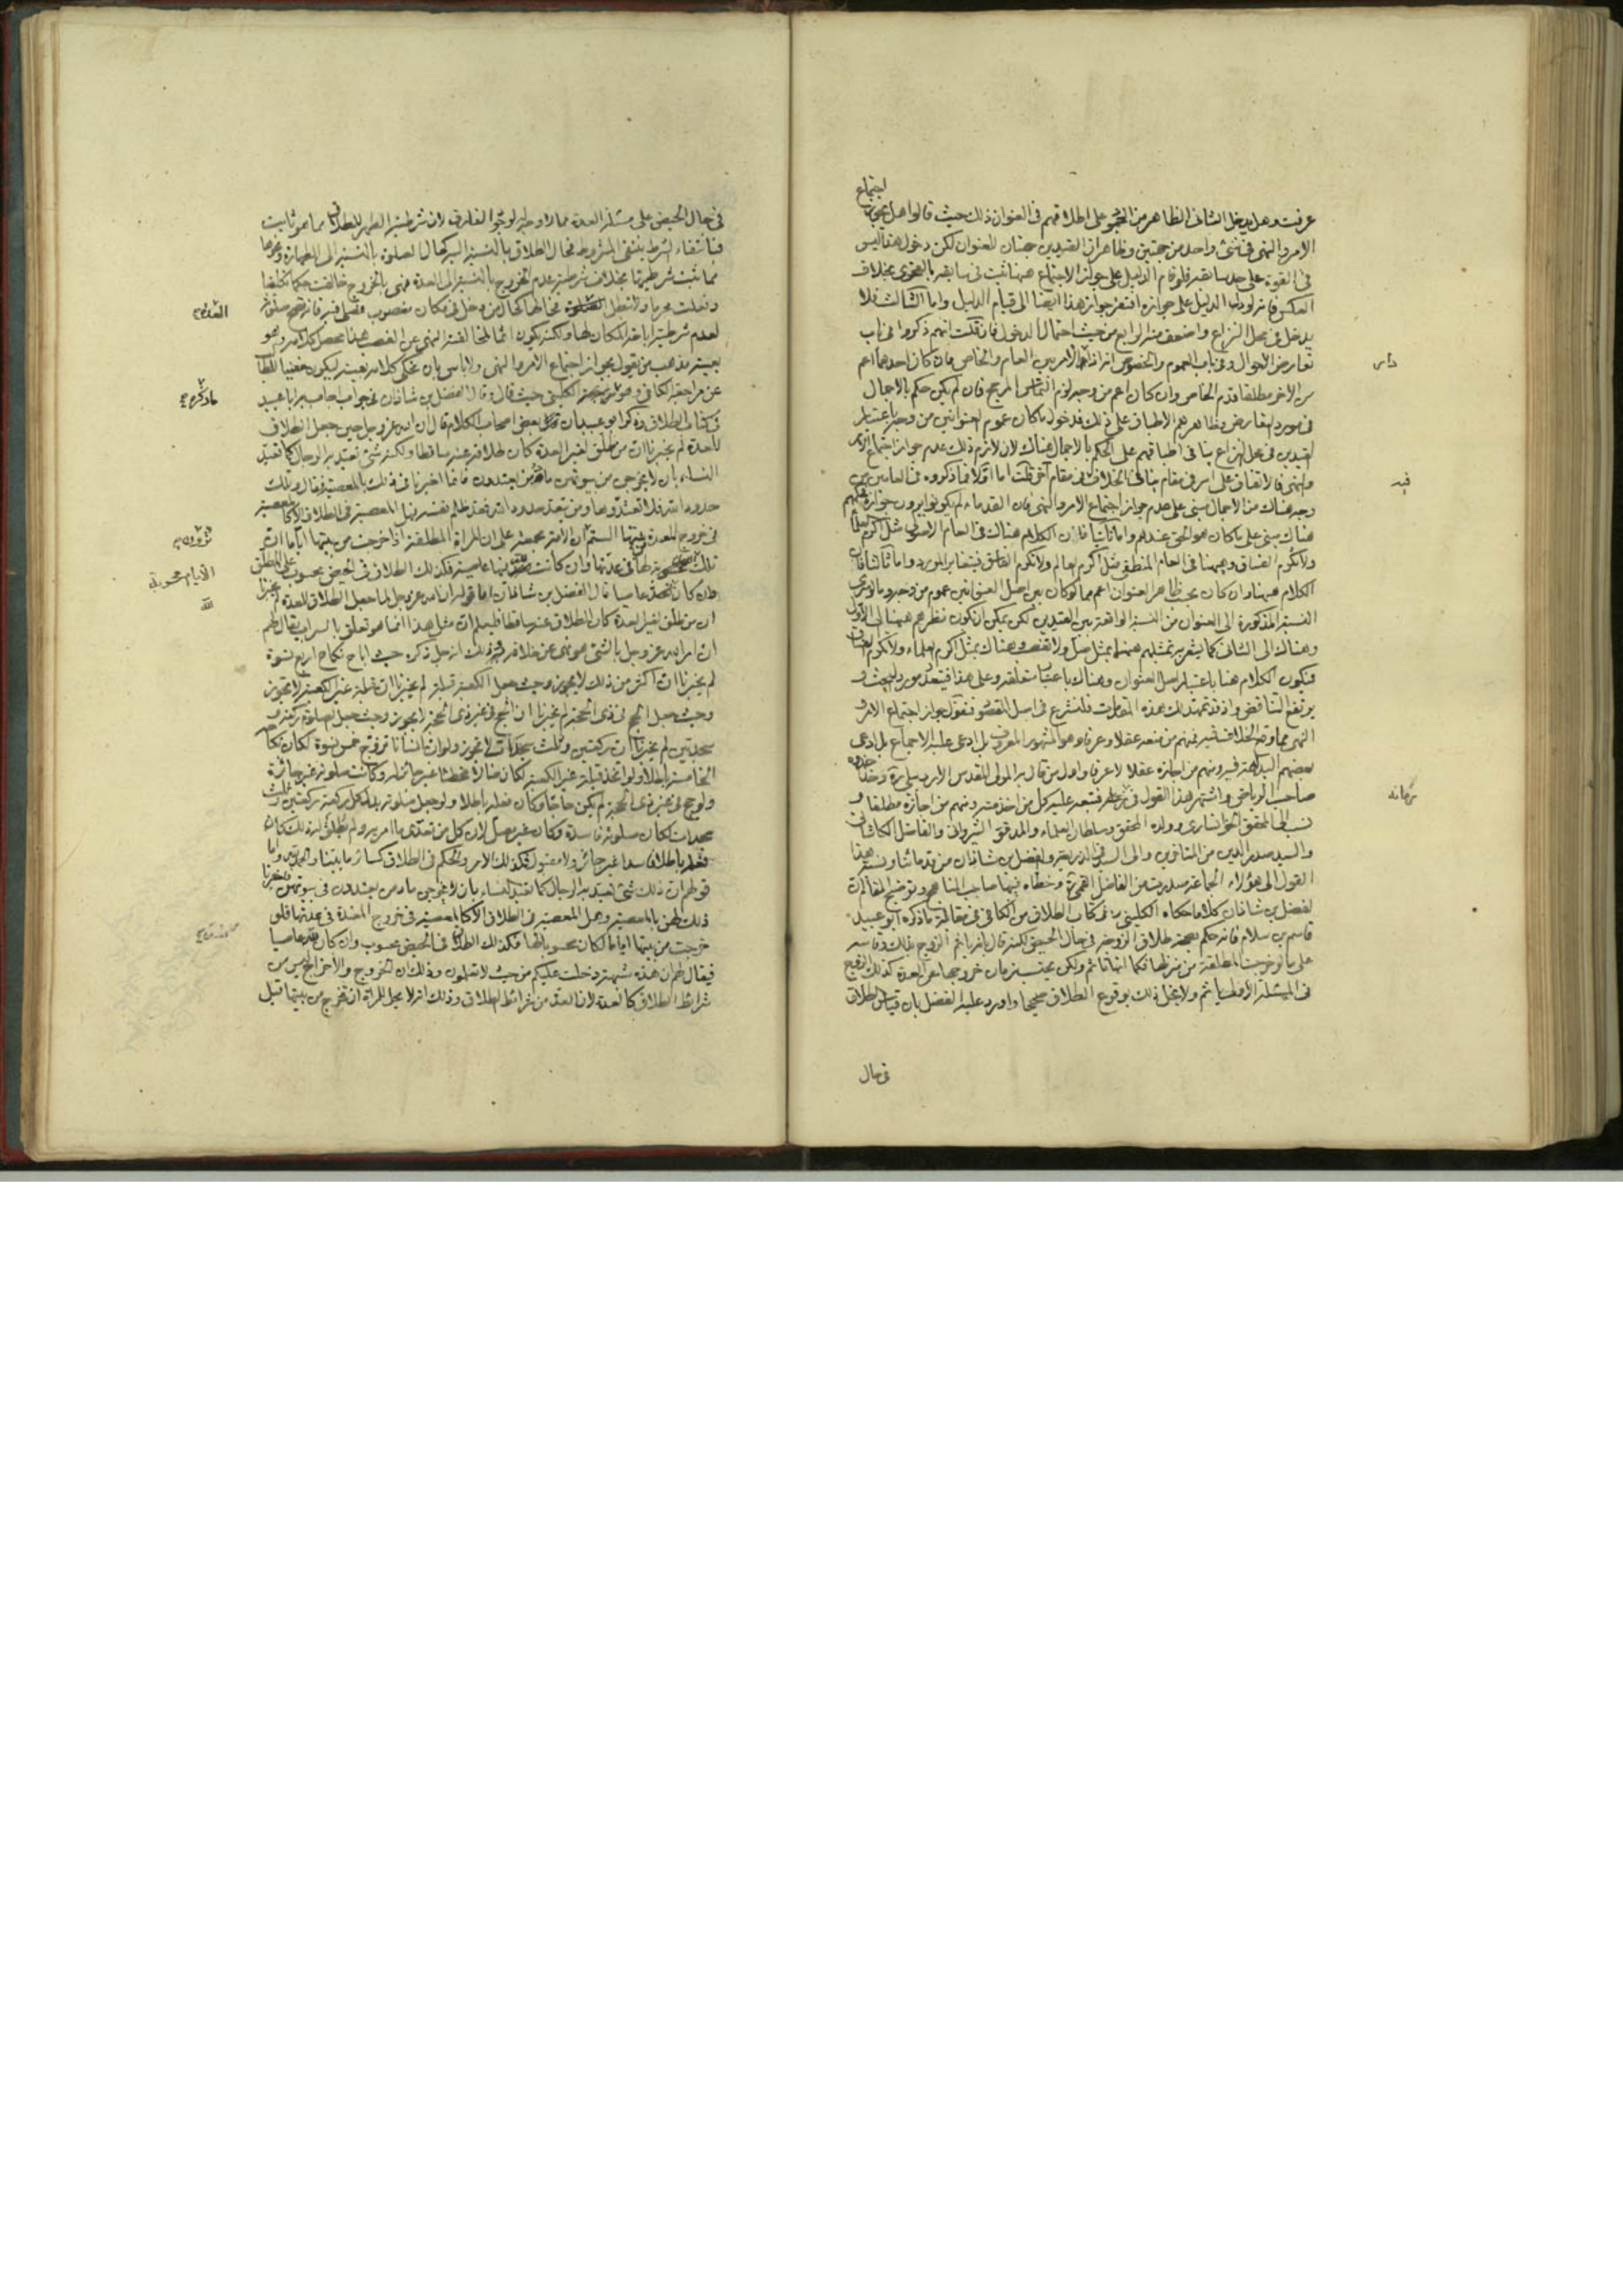 اجتماع
عرفت وهل يدخل الثانى الظاهر من على اطلاقهم فى العنوان ذلك حيث قالوا هل يجوز
الامر والنهى فى شئ واحد من جهتين وظاهر ان القيدين جهتان للعنوان لكن دخول هذا ليس
فى القوة على حد سابقه فلو قام الدليل على جواز الاجتماع ههنا ثبت فى سابقه بالفحوى بخلاف
العكس فانه لو دل الدليل على جوازه افتقر جواز هذا ايضا الى قيام الدليل واما الثالث فلا
يدخل فى محل النزاع واضعف منه الرابع من حيث احتمال الدخول فان قلت انهم ذكروا فى باب
تعارض الاحوال وفى باب العموم والخصوص انه اذا الامر بين العام والخاص فان كان احدهما اعم
من الاخر مطلقا قدم الخاص وان كان اعم من وجه لزم التماس المرجح فان لم يكن حكم بالاجمال
فى مورد التعارض وظاهرهم الاطباق على ذلك فدخول ما كان عموم العنوانين من وجه باعتبار
القيدين فى محل النزاع ينافى اطباقهم على الحكم بالاجمال هناك لان لازم ذلك عدم جواز اجتماع الامر
والنهى فالاتفاق على امر فى مقام ينافى الخلاف فى مقام آخر قلت اما اولا فما ذكروه فى العامين من
وجه هناك من الاجمال مبنى على عدم جواز اجتماع الامر والنهى فان القدماء لم يكونوا يرون جوازه
هناك مبنى على ما كان هو الحق عندهم واما ثانيا فلان الكلام هناك فى العام الاصولى مثل اكرم العلماء
ولا تكرم الفساق وههنا فى العام المنطقى مثل اكرم العالم ولا تكرم الفاسق فيتغاير المورد واما ثالثا فلان
الكلام ههنا وان كان بحسب ظاهر العنوان اعم مما لو كان بين اصل العنوانين عموم من وجه وما لو سرى
النسبة المذكورة الى العنوان من النسبة الواقعة بين القيدين لكن يمكن ان يكون نظرهم ههنا الى الاول
وهناك الى الثانى كما يشعر به تمثيلهم ههنا بمثل صل ولا تغصب وهناك بمثل اكرم العلماء ولا تكرم الفساق
فيكون الكلام هنا باعتبار اصل العنوان وهناك باعتبار متعلقه وعلى هذا فيتعدد مورد البحث و
يرتفع التناقض واذ قد تمهد لك هذه المقدمات فلنشرع فى اصل المقصود فنقول جواز اجتماع الامر و
النهى مما وقع الخلاف فيه فمنهم من منعه عقلا وعرفا وهو المشهور المعروف بل ادعى عليه الاجماع بل ادعى
بعضهم البداهة فيه ومنهم من اجازه عقلا لا عرفا واول من قال به المولى المقدس الاردبيلى ره وحذا حذوه
صاحب الرياض واشتهر هذا القول فى فتبعه عليه كل من اخذ منه ومنهم من اجازه مطلقا و
نسب الى المحقق الخوانسارى وولده المحقق وسلطان العلماء والمدقق الشروانى والفاضل الكاشانى
والسيد صدر الدين من المتاخرين والى السيد فى الذريعة وفضل بن شاذان من قدمائنا ونسبة هذا
القول الى هؤلاء الجماعة صدرت من الفاضل القمى ره وخطاه فيها صاحب المناهج وتوضيح المقال ان
لفضل بن شاذان كلاما حكاه الكلينى ره فى كتاب الطلاق من الكافى فى مقالة ما ذكره ابو عبيد
قاسم بن سلام فانه حكم بصحة طلاق الزوجة فى حال الحيض لكنه قال بانه ياثم الزوج بذلك وقاسه
على ما لو خرجت المطلقة من منزلها فكما انها تاثم ولكن يحتسب زمان خروجها من العدة كذلك الزوج
فى المسئلة الاولى ياثم ولا يخل ذلك بوقوع الطلاق صحيحا واورد عليه الفضل بان قياس الطلاق
فى حال
فى حال الحيض على مسئلة العدة مما لا وجه له لوضوح الفارق لان شرطية الطهر للطلاق مما هو ثابت
فبانتفاء الشرط ينتفى المشروط فحال الطلاق بالنسبة اليه كحال الصلوة بالنسبة الى الطهارة ونحوها
مما ثبت شرطيتها بخلاف شرطية عدم الخروج بالنسبة الى العدة فهى بالخروج خالفت حكما تكليفا
وفعلت محرما ولا تبطل فحالها كحال من دخل فى مكان مغصوب فصلى فيه فانه تصح صلوته
العدة صح
لعدم شرطية اباحة المكان لها ولكنه يكون آثما لمخالفته النهى عن الغصب هذا محصل كلامه وهو
بعينه مذهب من يقول بجواز اجتماع الامر والنهى ولا باس بان نحكى كلامه بعينه ليكون مغنيا للطالب
عن مراجعة الكافى الكلينى حيث قال وقال الفضل بن شاذان فى جواب اجاب به ابا عبيد
ما ذكره صح
فى كتاب الطلاق ذكر ابو عبيد ان بعض اصحاب الكلام قال ان الله عز وجل حين جعل الطلاق
للعدة لم يخبرنا ان من طلق لغير العدة كان طلاقه عنه ساقطا ولكنه شئ تعبد به الرجال كما تعبد
النساء بان لا يخرجن من بيوتهن ما دمن يعتددن فانما اخبرنا فى ذلك بالمعصية فقال وتلك
حدود الله فلا تعتدوها ومن يتعد حدود الله فقد ظلم نفسه فهل المعصية فى الطلاق الا كالمعصية
فى خروج المعتدة من بيتها الستم ان الامة مجمعة على ان المراة المطلقة اذا خرجت من بيتها اياما ان
ترون صح
تلك محسوبة لها فى عدتها وان كانت لله فيها عاصية فكذلك الطلاق فى الحيض محسوب على المطلق
الايام محسوبة
لله
وان كان لله عاصيا قال الفضل بن شاذان اما قوله ان الله عز وجل لما جعل الطلاق للعدة لم يخبرنا
ان من طلق لغير العدة كان الطلاق عنه ساقطا فليعلم ان مثل هذا انما هو تعلق بالسراب يقال لهم
ان امر الله عز وجل بالشئ هو نهى عن خلافه وذلك انه جل ذكره حيث اباح نكاح اربع نسوة
لم يخبرنا ان اكثر من ذلك لا يجوز وحيث جعل الكعبة قبلة لم يخبرنا ان قبلة غير الكعبة لا تجوز
وحيث جعل الحج فى ذى الحجة لم يخبرنا ان الحج فى غير ذى الحجة لا يجوز وحيث جعل الصلوة ركعة و
سجدتين لم يخبرنا ان ركعتين وثلث سجدات لا تجوز ولو ان انسانا تزوج خمس نسوة لكان نكاحه
الخامسة باطلا ولو اتخذ قبلة غير الكعبة لكان ضالا مخطئا غير جائز له وكانت صلوته غير جائزة
ولو حج فى غير ذى الحجة لم يكن حاجا وكان فعله باطلا ولو جعل صلوته بدل كل ركعة ركعتين وثلث
سجدات لكان صلوته فاسدة وكان غير مصل لان كل من تعدى ما امر به ولم يطلق له ذلك كان
فعله باطلا فاسدا غير جائز ولا مقبول فكذلك الامر والحكم فى الطلاق كسائر ما بينا والحمد لله واما
قولهم ان ذلك شئ تعبد به الرجال كما تعبد النساء بان لا يخرجن ما دمن يعتددن فى بيوتهن فاخبرنا
ذلك لهن بالمعصية وهل المعصية فى الطلاق الا كالمعصية فى خروج المعتدة فى عدتها فلو
خرجت من بيتها اياما لكان محسوبا لها فكذلك الطلاق فى الحيض محسوب وان كان لله عاصيا
فيقال لهم ان هذه شبهة دخلت عليكم من حيث لا تعلمون وذلك ان الخروج والاخراج ليس من
شرائط الطلاق كالعدة لان العدة من شرائط الطلاق وذلك انه لا يحل للمراة ان تخرج من بيتها قبل